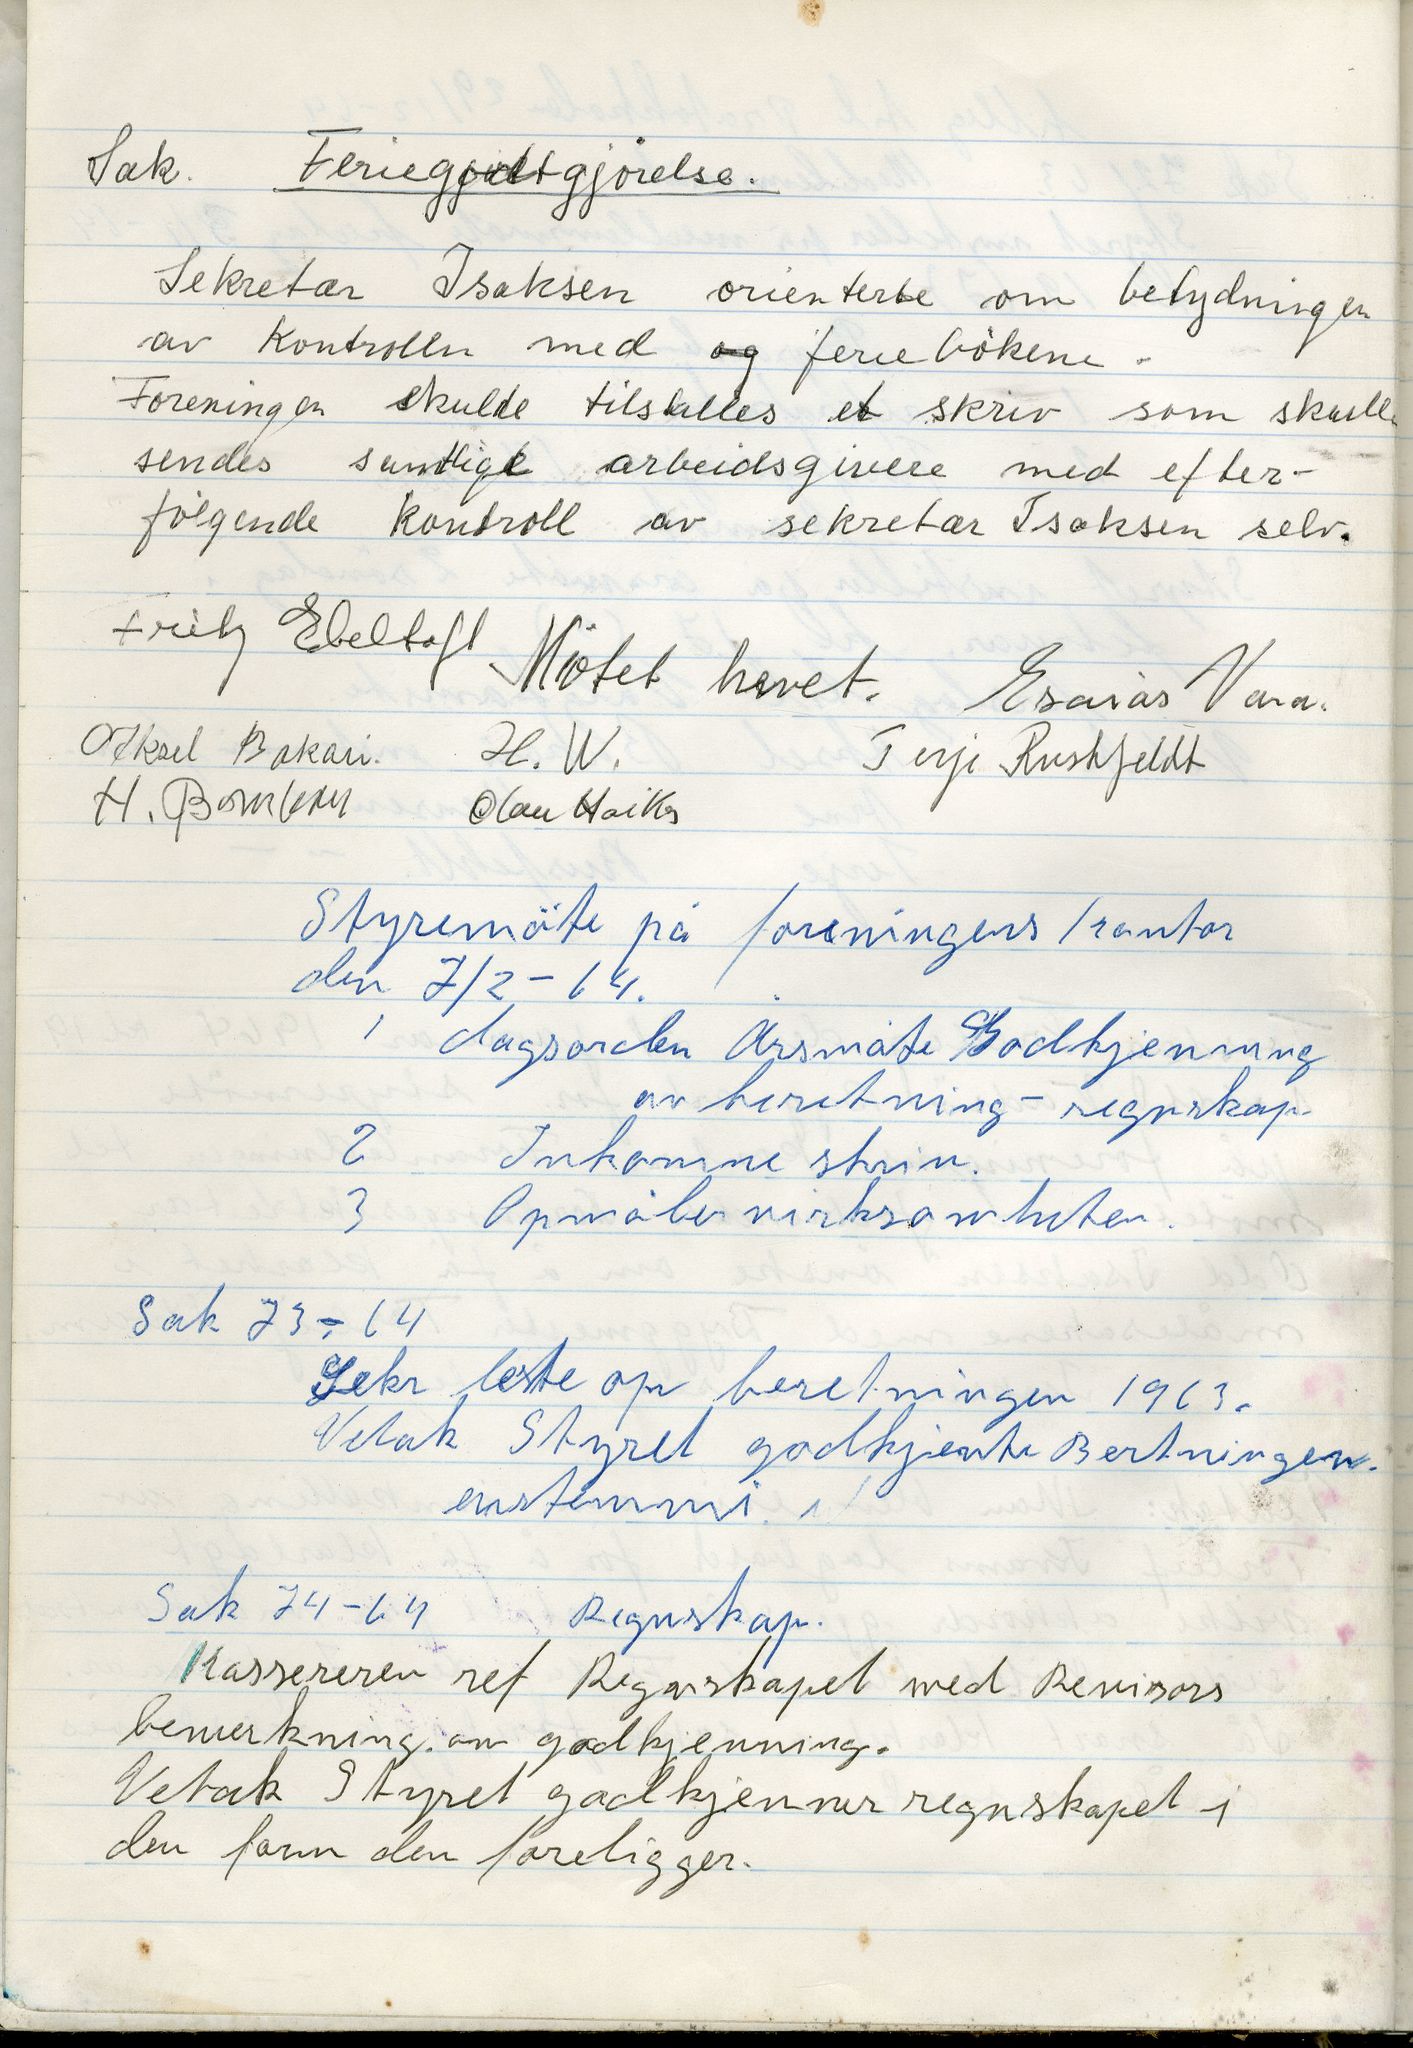 Sak. Feriegodtgjörelse.
Sekretær Isaksen orienterte om betydningen
av Kontrollen med og feriebökene.
Foreningen skulde tilstilles et skriv som skulle
sendes samtlige arbeidsgivere med efter-
følgende kontroll av sekretær Isaksen selv.
Fritz Ebeltoft Mötet hevet. Esaias Vara.
Aksel Bakari. H. W. Terje Rushfeldt
H. Olav
Styremöte på foreningens kontor
den 7/2-64.
1 dagsorden Årsmöte Godkjenning
av beretning - regnskap
2 Inkomne skriv.
3 Opmålervirksomheten.
Sak 73-64
Sekr leste op beretningen 1963.
Vetak Styret godkjente Bertningen.
enstemmi.
Sak 74-64 Regnskap.
Kassereren ref Regnskapet med Revisors
bemerkning om godkjenning.
Vetak Styret godkjenner regnskapet i
den form den foreligger.